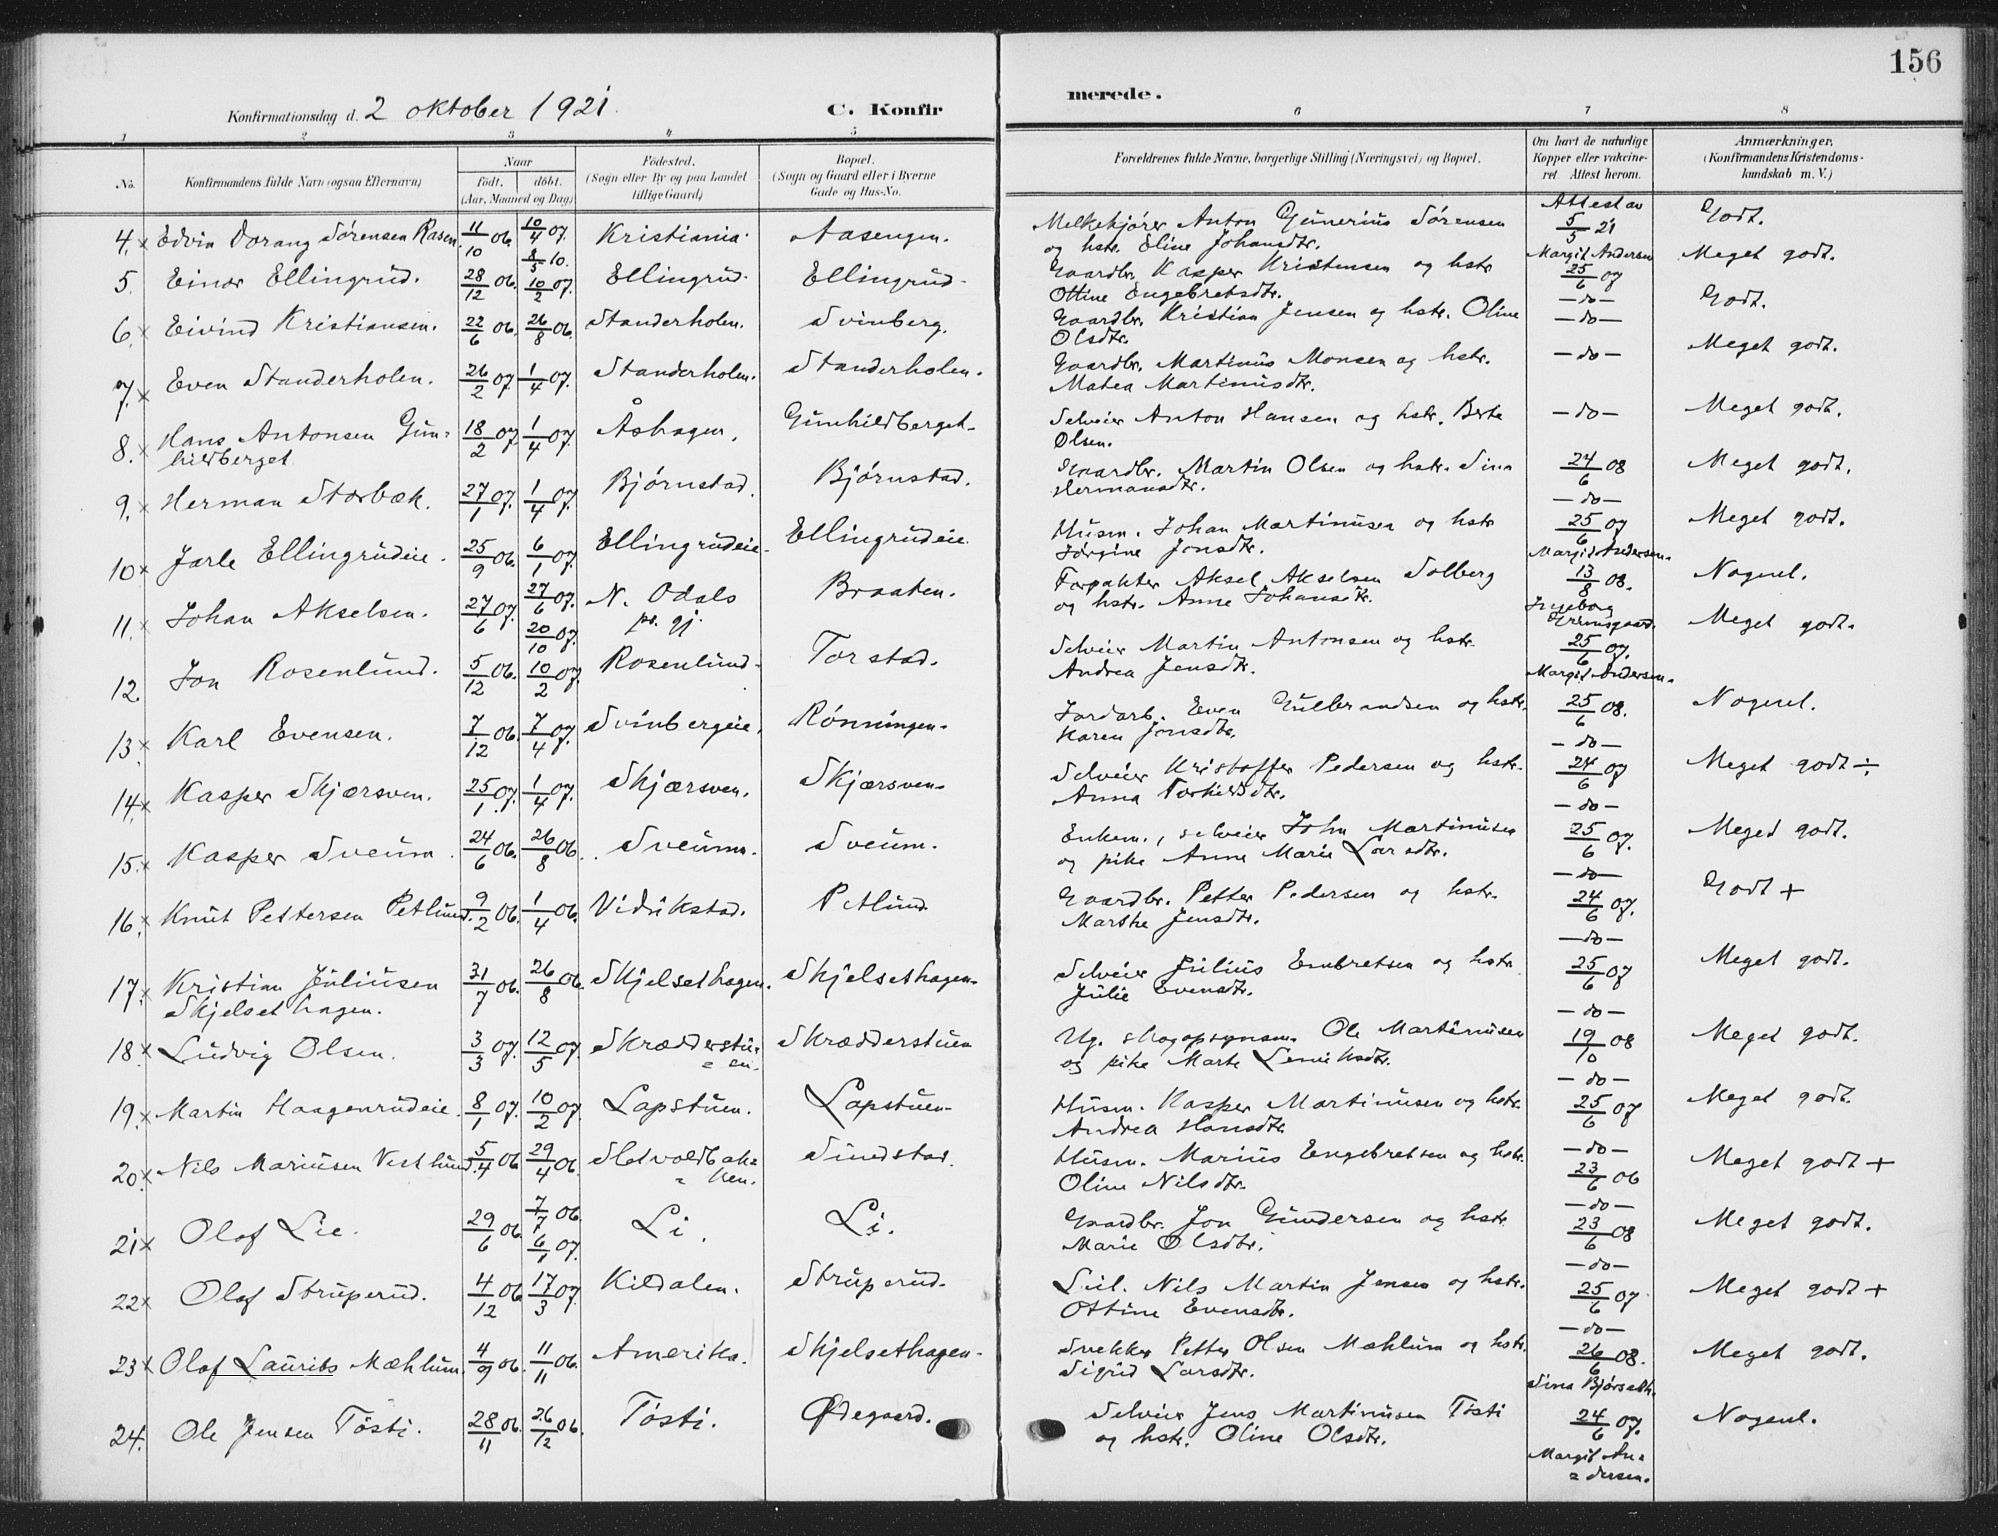 156
Konfirmationsdag d. 2 oktober 1921. C. Konfirmerede.
1 2 3 4 5 6 7 8
No. Konfirmandens fulde Navn (ogsaa Efternavn) Naar født. døbt. (Aar, Maaned og Dag) Fødested. (Sogn eller By og paa Landet tillige Gaard) Bopæl. (Sogn og Gaard eller i Byerne Gade og Hus-No. Forældrenes fulde Navne, borgerlige Stilling (Næringsvei) og Bopæl. Om havt de naturlige Kopper eller vakcineret Attest herom. Anmærkninger. (Konfirmandens Kristendomskundskab m. V.)
4. x Edvin Dorang Sørensen Rasen 11/10 06. 10/4 07. 8/5 10. Kristiania. Aasengen. Melkekjører Anton Gunerius Sørensen og hstr. Eline Johansdtr. Attest av 5/5 21 Margit Andersen Godt.
5. Einar Ellingrud. 28/12 06. 10/2 07. Ellingrud. Ellingrud. Gaardbr. Kasper Kristensen og hstr Ottine Engebretsdtr. 25/6 07 Meget godt.
6. x Eivind Kristiansen. 22/6 06. 26/8 06. Standerholen. Svinberg. Gaardbr. Kristian Jensen og hstr. Oline Olsdtr. —do— —do— Godt.
7. x Even Standerholen. 26/2 07. 1/4 07. Standerholen. Standerholen. Gaardbr. Martinus Monsen og hstr. Matea Martinusdtr. —do— Meget godt.
8. x Hans Antonsen Gunhildberget 18/2 07 1/4 07. Åshagen. Gunhildberget. Selveier Anton Hansen og hstr. Berte Olsen. —do— Meget godt.
9. x Herman Storbæk. 27/1 07. 1/4 07. Bjørnstad. Bjørnstad. Gaardbr. Martin Olsen og hstr. Sina Hermansdtr. 24/6 08 —do— Meget godt.
10 x Jarle Ellingrudeie. 25/9 06. 6/1 07. Ellingrudeie. Ellingrudeie. Husm. Johan Martinusen og hstr Jørgine Jonsdtr. 25/6 07 Margit Andersen. Meget godt.
11. x Johan Akselsen. 27/6 07. 27/6 07. 20/10 07. N. Odals pr. gj. Braaten. Forpakter Aksel Akselsen Solberg og hstr. Anne Johansdtr. 13/8 08. Ingeborg Nogenl.
12. Jon Rosenlund. 5/12 06. 10/2 07. Rosenlund. Torstad. Selveier Martin Antonsen og hstr. Andrea Jensdtr. 25/6 07. Margit Andersen. Meget godt.
13. x Karl Evensen. 7/12 06. 7/4 07. Svinbergeie. Rønningen. Jordarb. Even Gulbrandsen og hstr. Karen Jonsdtr. 25/6 08. —do— Nogenl.
14. x Kasper Skjærsven. 25/1 07. 1/4 07. Skjærsven. Skjærsven. Selveier Kristoffer Pedersen og hstr. Anna Torkildsdtr. 24/6 07 —do— Meget godt ÷
15. x Kasper Sveum. 24/6 06. 26/8 06. Sveum. Sveum. Enkem., selveier John Martinusen og pike Anne Marie Larsdtr. 25/6 07. —do— Meget godt.
16. x Knut Pettersen Petlund. 9/2 06. 1/4 06. Vidrikstad. Petlund Gaardbr. Petter Pedersen og hstr. Marthe Jensdtr. 24/6 07. —do— Godt +
17. x Kristian Juliusen Skjelsethagen. 31/7 06. 26/8 06. Skjelsethagen. Skjelsethagen. Selveier Julius Embretsen og hstr Julie Evensdtr. 25/6 07 —do— Meget godt.
18 x Ludvig Olsen. 3/3 07. 12/5 07. Skrædderstuen. Skrædderstuen Ug. skogopsynsm. Ole Martinusen og pike Marte 19/10 08 —do— Meget godt.
19. x Martin Haagenrudeie. 8/1 07. 10/2 07. Lapstuen. Lapstuen. Husm. Kasper Martinusen og hstr. Andrea Hansdtr. 25/6 07 —do— Meget godt.
20. x Nils Mariusen Vestlund. 5/4 06 29/4 06. Sletvoldbakken. Sundstad. Husm. Marius Engebretsen og hstr. Oline Nilsdtr. 23/6 06 —do— Meget godt +
21 x Olaf Lie. 29/6 06. 7/7 06. 6/1 07. Li. Li. Gaardbr. Jon Gundersen og hstr. Marie Olsdtr. 23/6 08 —do— Meget godt.
22 x Olaf Struperud. 4/12 06. 17/3 07. Kildalen. Struperud. Leil. Nils Martin Jensen og hstr. Ottine Evensdtr. 25/6 07 —do— Meget godt +
23 x Olaf Laurits Mæhlum. 4/9 06. 11/11 06. Amerika. Skjelsethagen. Snekker Petter Olsen Mæhlum og hstr. Sigrid Larsdtr. 26/6 08. Sina Bjørseth. Meget godt.
24. Ole Jensen Tøsti. 28/11 06. 26/12 06. Tøsti. Ødegaard. Selveier Jens Martinusen Tøsti og hstr. Oline Olsdtr. 24/6 07. Margit Andersen. Nogenl.